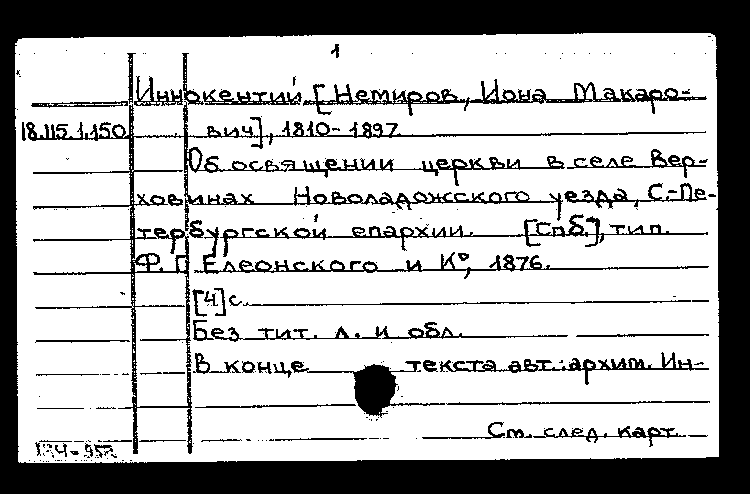 1
Иннокентий [Немиров, Иона Макаро-
18.115.1.150 вич], 1810-1897.
Об освящении церкви в селе Вер-
ховинах Новоладожского уезда, С.-Пе-
тербургской епархии. [Спб.], тип.
Ф. Г. Елеонского и К°, 1876.
[4] с.
Без тит. л. и обл.
В конце текста авт.: архим. Ин-
См. след. карт.